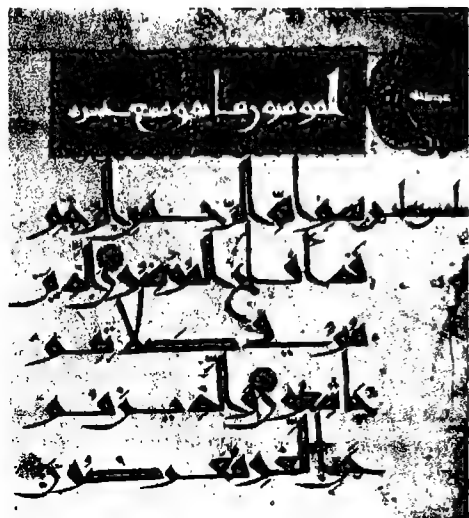 المومنون مائة وتسع عشرة
بسم الله الرحمن الرحيم
قد أفلح المؤمنون الذين
هم في صلاتهم
خاشعون والذين هم
عن اللغو معرضون